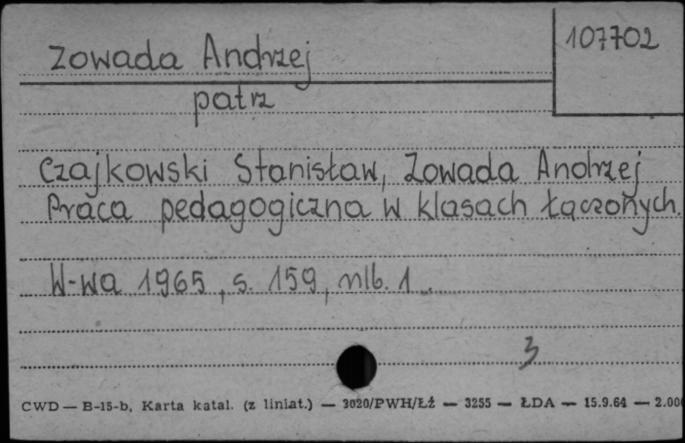 Zowada Andrzej
107702
patrz
Czajkowski Stanisław, Zowada Andrzej
Praca pedagogiczna w klasach łączonych.
W-wa 1965, s. 159, nlb. 1.
3
CWD — B-15-b, Karta katal. (z liniat.) — 3020/PWH/Łź — 3255 — ŁDA — 15.9.64 — 2.00